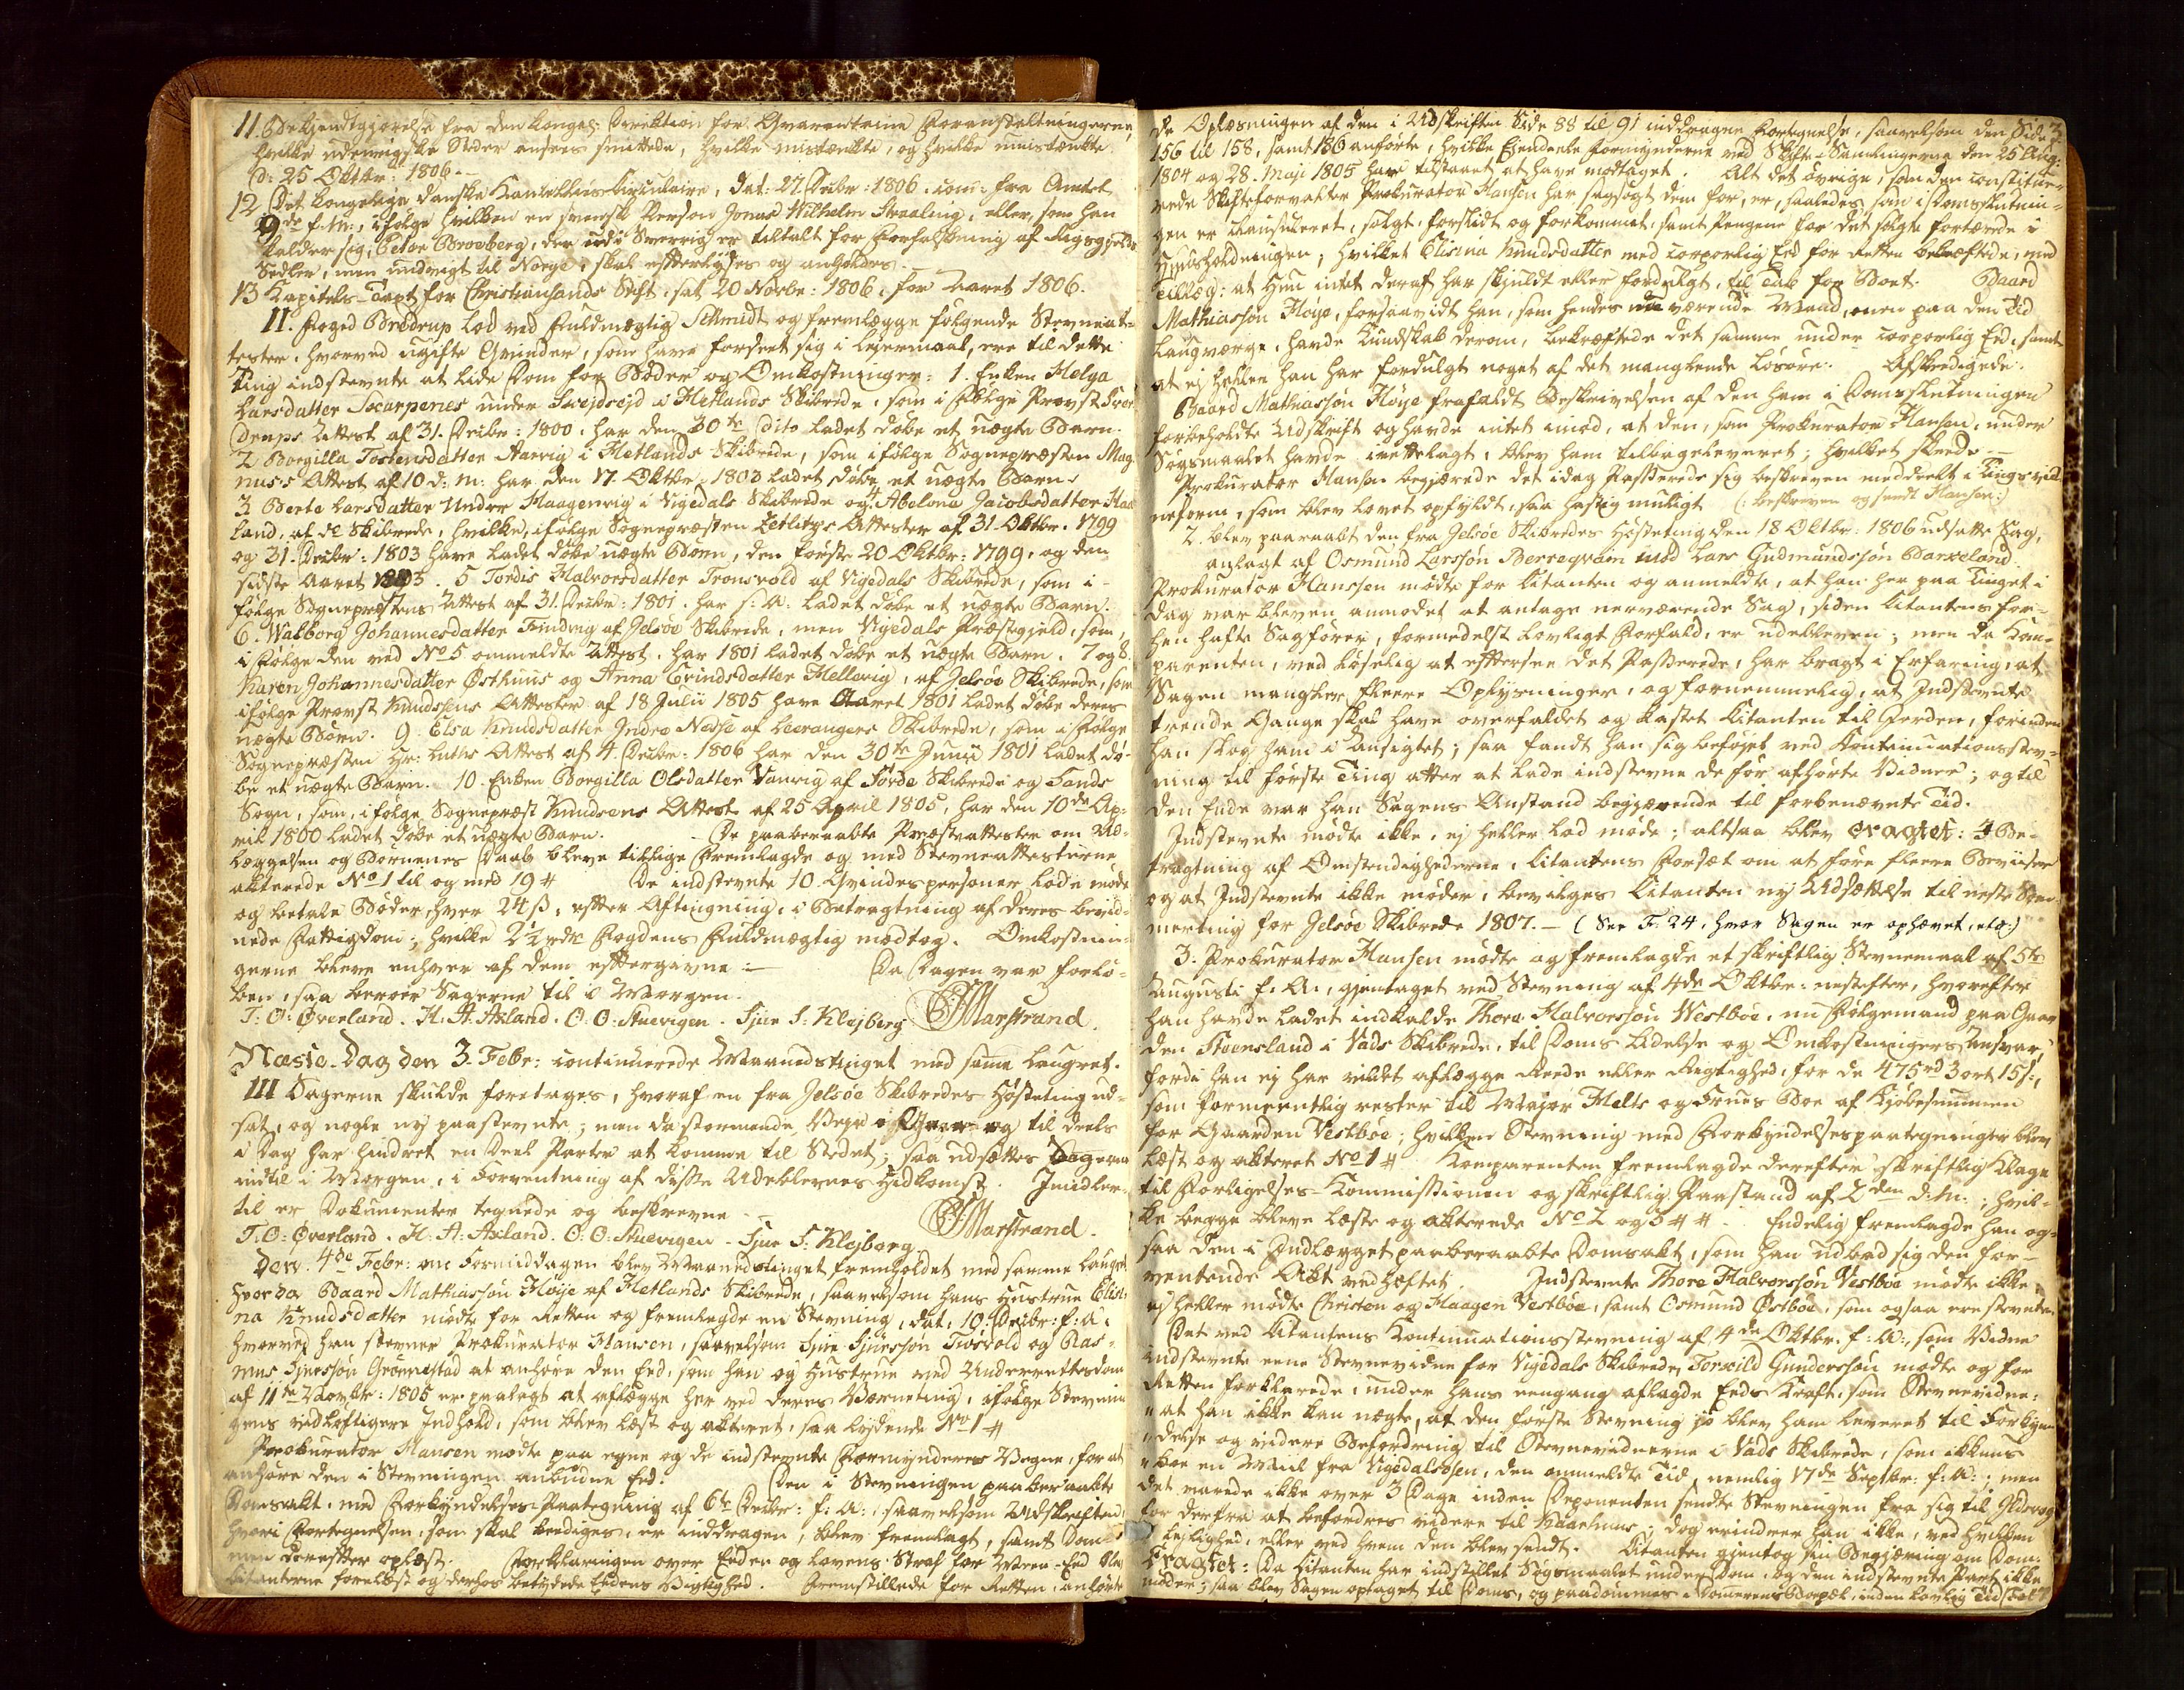 11. Bekjendtgjørelse fra den kongel: Direktion for Qvarantaine Foranstaltningerne,
hvilke udenrigske Steder ansees smittede, hvilke mistænkte, og hvilke umistænkte.
d: 25 Oktbr: 1806. —
12 Det kongelige danske Kancellies Cirkulaire, dat: 27. Decbr: 1806. com: fra Amtet
9de f. M:, ifølge hvilken en svensk Person Jonas Wilhelm Straaling, eller, som han
kalder sig, Peter Broeberg, der udi Sverrig er tiltalt for Forfalskning af Rigsgjelds
Sedler, men undvigt til Norge, skal efterlydes og anholdes.
13 Kapitels-Taxt for Christiansands Stift, sat 20 Novbr: 1806, for Aaret 1806.
II. Foged Bredrup lod ved Fuldmægtig Schmidt og fremlægge følgende Stevneat-
tester, hvorved ugifte Qvinder, som have forseet sig i Leiermaal, ere til dette
Ting indstevnte at lide Dom for Bøder og Omkostninger: 1. Enken Helga
Larsdatter Scarpenes under Svejdsejd i Hetlands Skibrede, som i Følge Provst
Attest af 31. Decbr: 1800. har den 30te dito ladet døbe et uægte Barn.
2 Borgilla Tostensdatter Aarvig i Hetlands Skibrede, som ifølge Sognepræsten Mag-
nus's Attest af 10 d: M: har den 17. Oktbr: 1803 ladet døbe et uægte Barn.
3 Berte Larsdatter Under Haagenvig i Vigedals Skibrede og 4 Abelona Jacobsdatter
land, af do Skibrede, hvilke, ifølge Sognepræsten Zetlitz's Attester af 31. Oktbr. 1799
og 31. Decbr: 1803 have ladet døbe uægte Børn, den første 20 Oktbr: 1799, og den
sidste Aaret 1803. 5 Tordis Halvorsdatter Tronsvold af Vigedals Skibrede, som i-
følge Sognepræstens Attest af 31. Decbr: 1801. har s: A: ladet døbe et uægte Barn.
6. Walborg Johannesdatter Findvig af Jelsøe Skibrede, men Vigedals Præstegjeld, som,
i Følge den ved No 5 ommeldte Attest, har 1801 ladet døbe et uægte Barn. 7 og 8.
Karen Johannesdatter Østhuus og Anna Evindsdatter Hellervig, af Jelsøe Skibrede, som
ifølge Provst Knudsens Attester af 18 Julii 1805 have Aaret 1801 ladet døbe deres
uægte Børn. 9. Elsa Knudsdatter Indre Nedse af Leerangers Skibrede, som i Følge
Sognepræsten Hr: Attest af 4. Decbr: 1806 har den 30te Junii 1801 ladet dø-
be et uægte Barn. 10. Enken Borgilla Olsdatter Vanvig af Førde Skibrede og Sands
Sogn, som, ifølge Sognepræst Knudsens Attest af 25 April 1805, har den 10de Ap-
ril 1800 ladet døbe et uægte Barn. — De paaberaabte Præsteattester om Ud-
læggelsen og Børnenes Daab bleve tillige fremlagde og med Stevneattesterne
akterede No 1 til og med 19 # De indstevnte 10. Qvindespersoner lode møde
og betale Bøder, hver 24 ß, efter Aftingning, i Betragtning af deres bevid-
nede Fattigdom; hvilke 2½ rdr Fogdens Fuldmægtig modtog. Omkostnin-
gerne bleve enhver af dem eftergivne: — Da Dagen var forlø-
ben, saa beroer Sagerne til i Morgen.
T: O: Øverland. H. A. Axland. O. O: Stuevigen. Sjur S: Klejberg Marstrand.
Næste Dag den 3. Febr: continuerede Maanedstinget med samme Laugret.
III Sagerne skulde foretages, hvoraf en fra Jelsøe Skibredes Høsteting ud-
sat, og nogle ny paastevnte; men da stormende Vejr i Gaar og til deels
i Dag har hindret en Deel Parter at komme til Stedet; saa udsættes Sagerne
indtil i Morgen, i Forventning af disse Udeblevnes Hidkomst. Imidler-
til er Dokumenter tegnede og beskrevne —
T. O: Øverland. H: A: Axland. O. O: Stuevigen. Sjur S: Klejberg Marstrand.
Den 4de Febr: om Formiddagen blev Maanedstinget fremholdet med samme Laugret,
hvor da Baard Mathiassøn Høije af Hetlands Skibrede, saavelsom hans Hustrue Elisi-
na Knudsdatter mødte for Retten og fremlagde en Stevning, dat: 10. Decbr: f: A:
hvorved han stevner Prokurator Hansen, saavelsom Sjur Sjurssøn Tvosvold og Ras-
mus Sjurssøn Grønnestad at anhøre den Eed, som han og Hustrue ved Underrettsdom
af 11te Novbr: 1805 er paalagt at aflægge her ved deres Værneting, ifølge Stevnin-
gens vidløftigere Indhold, som blev læst og akteret, saa lydende No 1 #
Prokurator Hansen mødte paa egne og de indstevnte Formynderes Vegne, for at
anhøre den i Stevningen anbudne Eed. Den i Stevningen paaberaabte
Domsakt, med Forkyndelses-Paategning af 6te Decbr: f: A:, saavelsom Udskriften,
hvori Fortegnelsen, som skal beediges, er inddragen, blev fremlagt, samt Dom-
men derefter oplæst. Forklaringen over Eeden og Lovens Straf for Meen-Eed blev
Citanterne forelæst og derhos betydede Eedens Vigtighed. Fremstillede for Retten, anhørte
de Oplæsningen af den i Udskriften Side 88 til 91 inddragne Fortegnelse, saavelsom den Side 3
156 til 158, samt 180 anførte, hvilke Eiendeele Formynderne ved Skifte-Samlingerne den 25 Aug:
1804 og 28. Maji 1805 har tilstaaet at have modtaget. Alt det øvrige, som den constitue-
rede Skifteforvalter Prokurator Hansen har sagsøgt dem for, er, saaledes som i Domsslutnin-
gen er clausuleret, solgt, forslidt og forkommet, samt Pengene for det solgte fortærede i
Huusholdningen; hvilket Elisina Knudsdatter med corporlig Eed for Retten bekræftede, med
Tillæg: at Hun intet deraf har skjuldt eller fordulgt, til Tab for Boet. Baard
Mathiassøn Høye, forsaavidt han, som hendes nu værende Mand, men paa den Tid
Laugværge, havde Kundskab derom, bekræftede det samme under corporlig Eed, samt
at ej heller han har fordulgt noget af det manglende Løsøre. Afskedigede.
Baard Mathiassøn Høye frafaldt Beskrivelsen af den ham i Domsslutningen
forbeholdte Udskrift og havde intet imod, at den, som Prokurator Hansen, under
Søgsmaalet havde irettelagt, blev ham tilbageleveret; hvilket skeede —
Prokurator Hansen begjærede det idag Passerede sig beskreven meddeelt i Tingsvid-
neform, som blev lovet opfyldt, saa hastig muligt (: beskreven og sendt Hansen:)
2. blev paaraabt den fra Jelsøe Skibredes Høsteting den 18 Oktbr: 1806 udsatte Sag,
anlagt af Osmund Larssøn Berreqvam imod Lars Gudmundssøn Barkeland.
Prokurator Hanssen mødte for Citanten og anmeldte, at han her paa Tinget i
Dag var bleven anmodet at antage nerværende Sag, siden Citantens for-
hen hafte Sagfører, formedelst lovligt Forfald, er udebleven; men da Kom-
parenten, ved løselig at eftersee det Passerede, har bragt i Erfaring, at
Sagen mangler fleere Oplysninger, og fornemmelig, at Indstevnte
trende Gange skal have overfaldet og kastet Citanten til Jorden, forinden
han slog ham i Ansigtet; saa fandt han sig beføjet ved Kontinuationsstev-
ning til første Ting atter at lade indstevne de før afhørte Vidner; og til
den Ende var han Sagens Anstand begjærende til forbenævnte Tid.
Indstevnte mødte ikke, ej heller lod møde; altsaa blev eragtet: I Be-
tragtning af Omstendighederne, Citantens Forsæt om at føre fleere Beviiser
og at Indstevnte ikke møder, bevilges Citanten ny Udsættelse til neste Som-
merting for Jelsøe Skibrede 1807. — (See F. 24, hvor Sagen er ophævet, etc:)
3. Prokurator Hansen mødte og fremlagde et skriftlig Stevnemaal af 5te
Augusti f: A:, gjentaget ved Stevning af 4de Oktbr: nestefter, hvorefter
han havde ladet indkalde Thore Halvorssøn Westbøe, nu Følgemand paa Gaar-
den Steensland i Vads Skibrede, til Doms Lidelse og Omkostningers Ansvar,
fordi han ej har villet aflægge Reede eller Rigtighed, for de 475 rd 3 ort 15 ß,
som formeentlig rester til Major Helts og Frues Boe af Kjøbesummen
for Gaarden Vestbøe; hvilken Stevning med Forkyndelsespaategninger blev
læst og akteret No 1 # Komparenten fremlagde derefter skriftlig Klage
til Forligelses-Kommissionen og skriftlig Paastand af 2den d: M:; hvil-
ke begge bleve læste og akterede No 2 og 3 # #. Endelig fremlagde han og-
saa den i Indlægget paaberaabte Domsakt, som han udbad sig den for-
ventende Akt vedhæftet. Indstevnte Thore Halvorssøn Vestbøe mødte ikke;
ej heller mødte Christen og Haagen Vestbøe, samt Osmund Østbøe, som ogsaa ere stevnte.
Det ved Citantens Kontinuationsstevning af 4de Oktbr. f: A:, som Vidne
indstevnte eene Stevnevidne for Vigedals Skibrede, Torkild Gunderssøn mødte og for
Retten forklarede, under hans eengang aflagde Eeds Kraft, som Stevnevidne:
" at han ikke kan nægte, at den første Stevning jo blev ham leveret til Forkyn-
" delse og videre Befordring til Stevnevidnerne i Vads Skibrede, som ikkuns
" boe en Miil fra Vigedalsosen, den ommeldte Tid, nemlig 17de Septbr: f: A:; men
det varede ikke over 3 Dage inden Deponenten sendte Stevningen fra sig til
for derfra at befordres videre til; dog erindrer han ikke, ved hvilken
Leilighed, eller ved hvem den blev sendt. Citanten gjentog sin Begjæring om Dom.
Eragtet: Da Citanten har indstillet Søgsmaalet under Dom, og den indstevnte Part ikke
møder; saa blev Sagen optaget til Doms, og paadømmes i Dommerens Bopæl, inden lovlig Tid